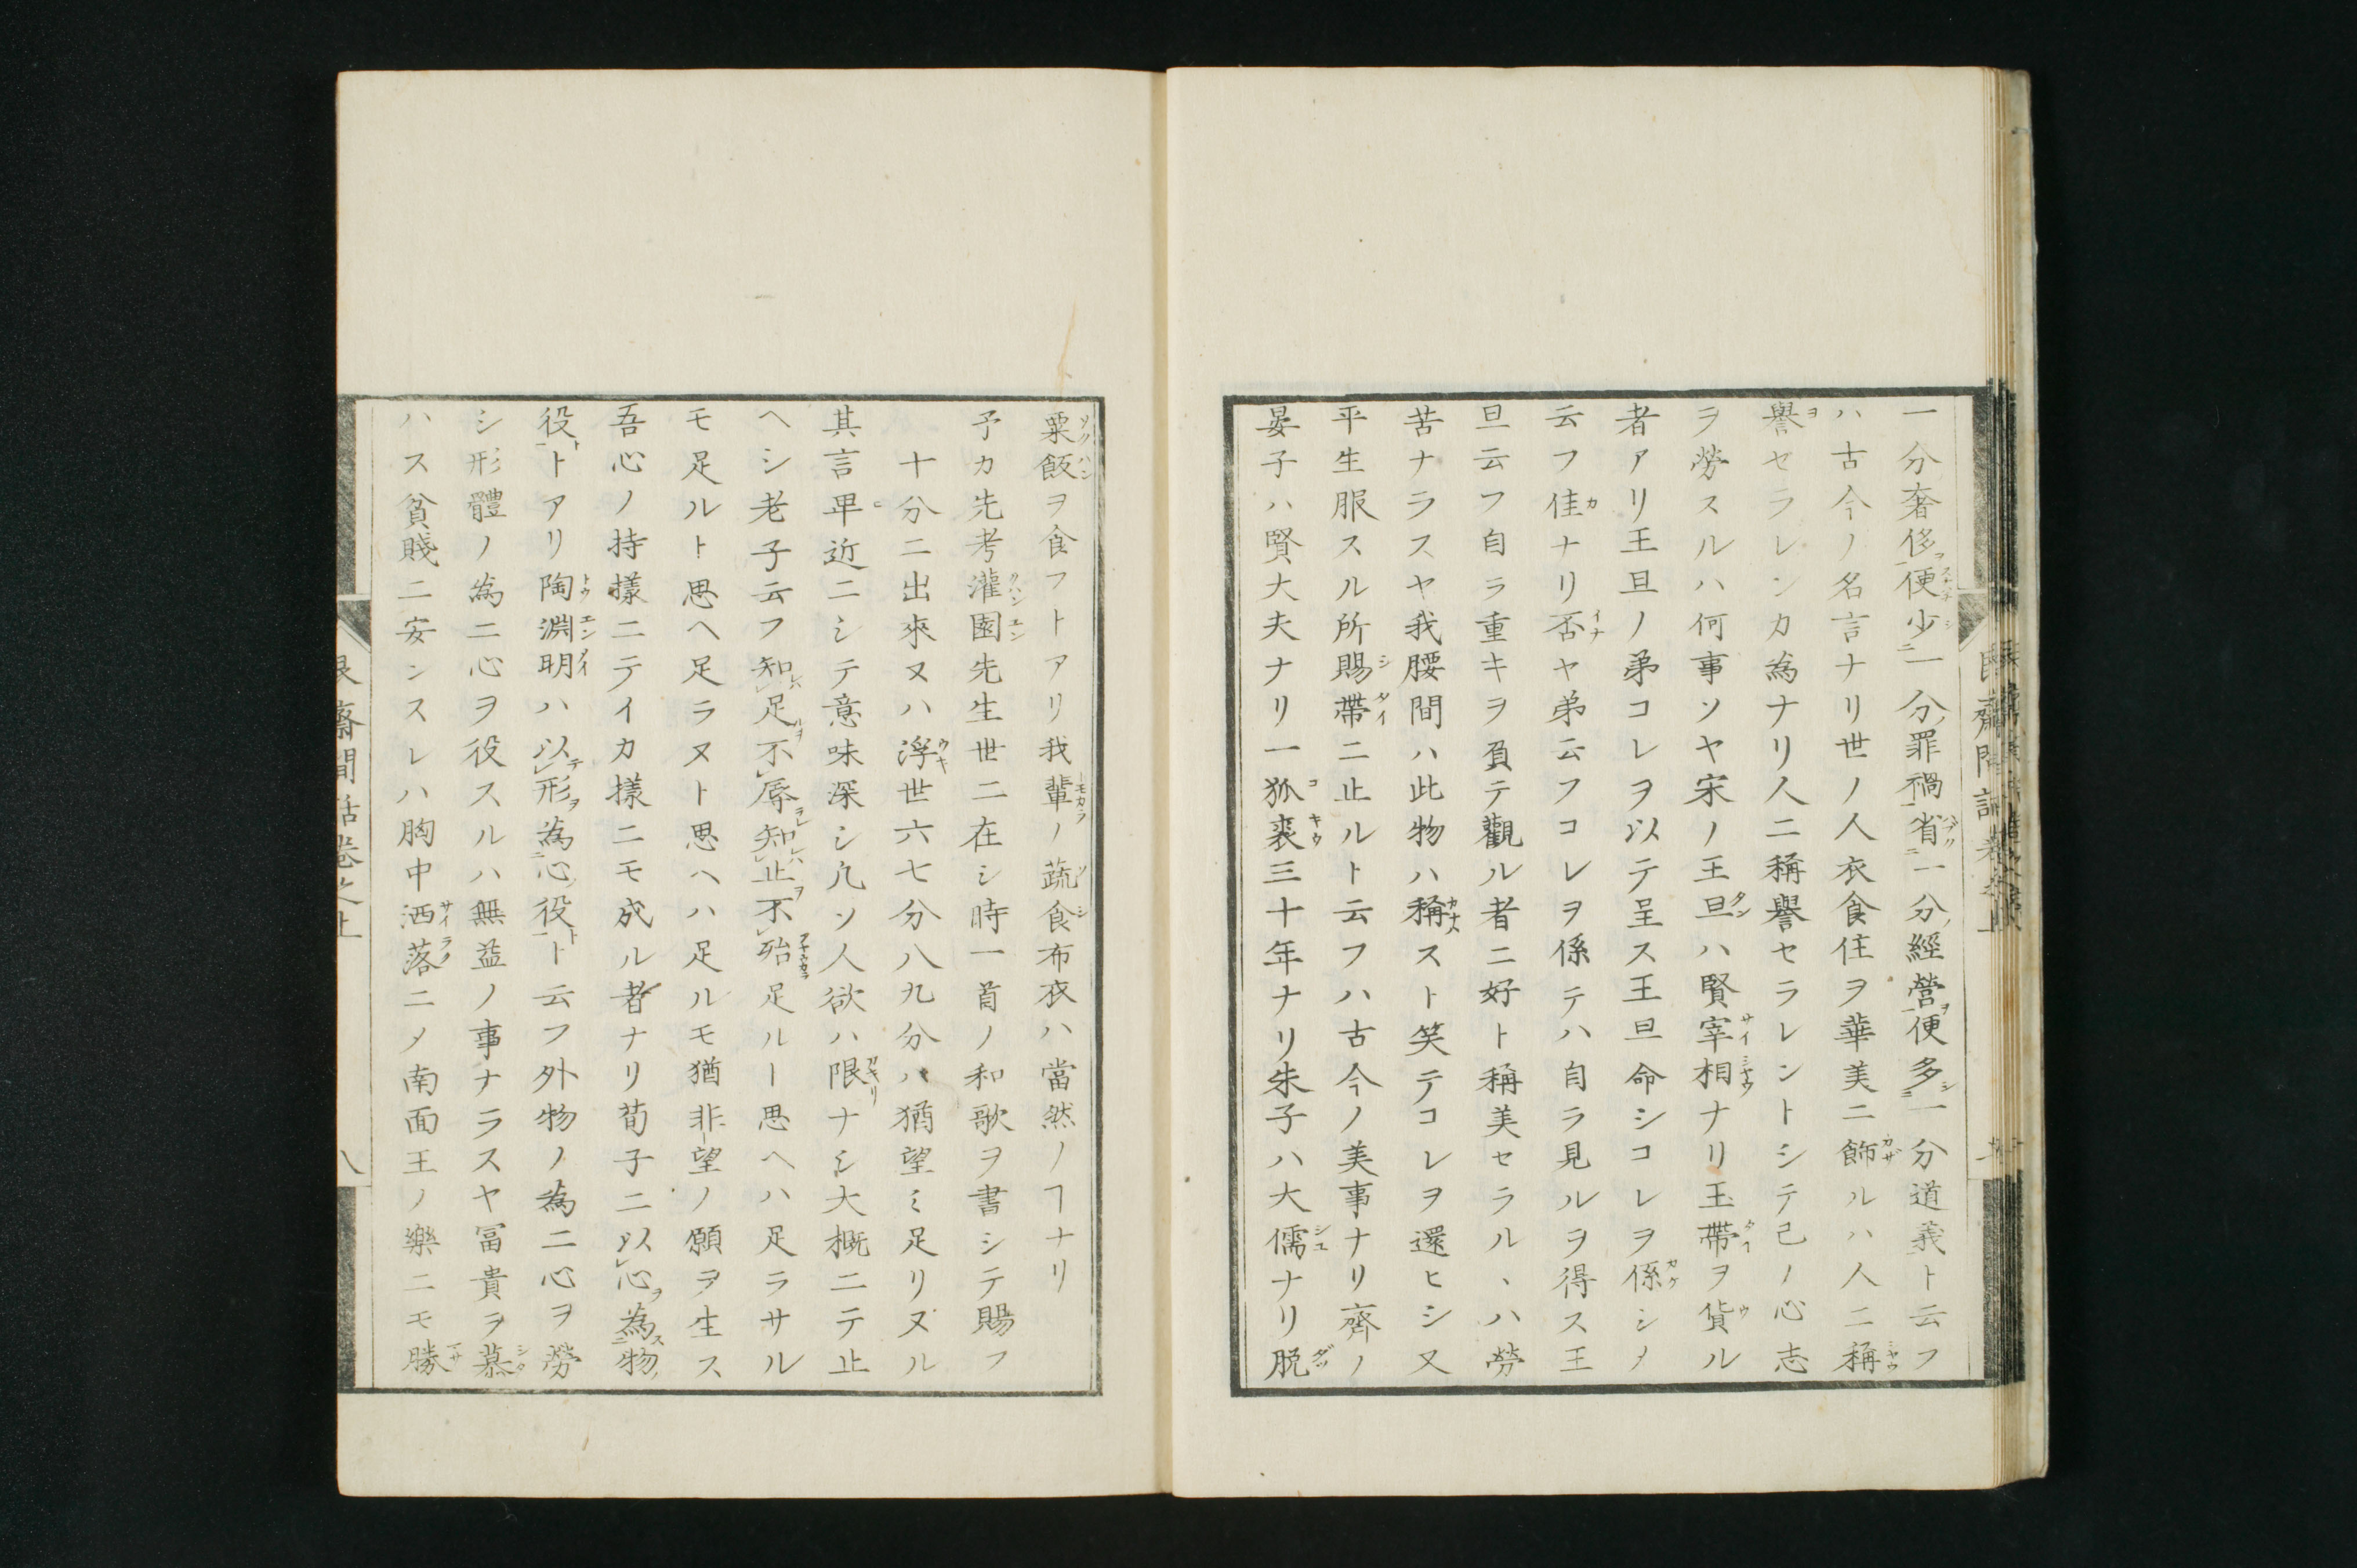 一分奢侈便少一分罪禍省一分經營便多一分道義ト云フ
ハ古今ノ名言ナリ世ノ人衣食住ヲ華美ニ飾ルハ人ニ稱
譽セラレンカ為ナリ人ニ稱譽セラレントシテ己ノ心志
ヲ勞スルハ何事ソヤ宋ノ王旦ハ賢宰相ナリ玉帶ヲ貨ル
者アリ王旦ノ弟コレヲ以テ呈ス王旦命シコレヲ係シメ
云フ佳ナリ否ヤ弟云フコレヲ係テハ自ラ見ルヲ得ス王
旦云フ自ラ重キヲ負テ觀ル者ニ好ト稱美セラルヽハ勞
苦ナラスヤ我腰間ハ此物ハ稱スト笑テコレヲ還ヒシ又
平生服スル所賜帶ニ止ルト云フハ古今ノ美事ナリ齊ノ
晏子ハ賢大夫ナリ一狐裘三十年ナリ朱子ハ大儒ナリ脱
粟飯ヲ食フトアリ我輩ノ蔬食布衣ハ當然ノヿナリ
予カ先考灌園先生世ニ在シ時一首ノ和歌ヲ書シテ賜フ
十分ニ出來ヌハ浮世六七分八九分ハ猶望ミ足リヌル
其言卑近ニシテ意味深シ凡ソ人欲ハ限ナシ大概ニテ止
ヘシ老子云フ知足不辱知止不殆足ルー思ヘハ足ラサル
モ足ルト思ヘ足ラヌト思ヘハ足ルモ猶非望ノ願ヲ生ス
吾心ノ持樣ニテイカ樣ニモ成ル者ナリ荀子ニ以心為物
役トアリ陶淵明ハ以形為心役ト云フ外物ノ為ニ心ヲ勞
シ形體ノ為ニ心ヲ役スルハ無益ノ事ナラスヤ冨貴ヲ慕
ハス貧賤ニ安ンスレハ胸中洒落ニメ南面王ノ樂ニモ勝
艮齋閒話卷之上
八